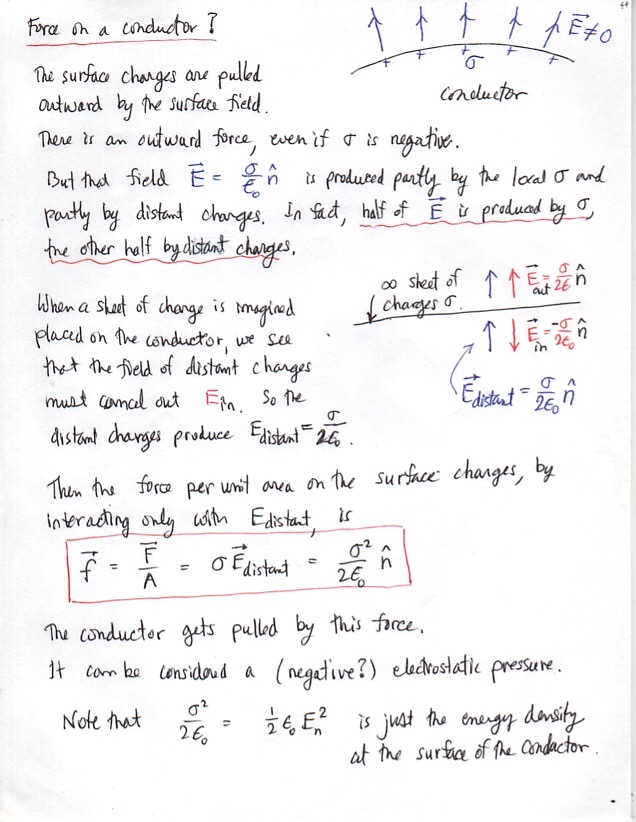 44
Force on a conductor?
E⃗≠0
+ + + + +
σ
conductor
The surface charges are pulled
outward by the surface field.
There is an outward force, even if σ is negative.
But that field E⃗ = σ/ε₀ n̂ is produced partly by the local σ and
partly by distant charges. In fact, half of E⃗ is produced by σ,
the other half by distant charges.
∞ sheet of
charges σ.
E⃗out = σ/2ε₀ n̂
E⃗in = -σ/2ε₀ n̂
E⃗distant = σ/2ε₀ n̂
When a sheet of charge is imagined
placed on the conductor, we see
that the field of distant charges
must cancel out Ein. So the
distant charges produce Edistant = σ/2ε₀.
Then the force per unit area on the surface charges, by
interacting only with Edistant, is
f⃗ = F⃗/A = σE⃗distant = σ²/2ε₀ n̂
The conductor gets pulled by this force.
It can be considered a (negative?) electrostatic pressure.
Note that σ²/2ε₀ = ½ ε₀ Eₙ² is just the energy density
at the surface of the conductor.